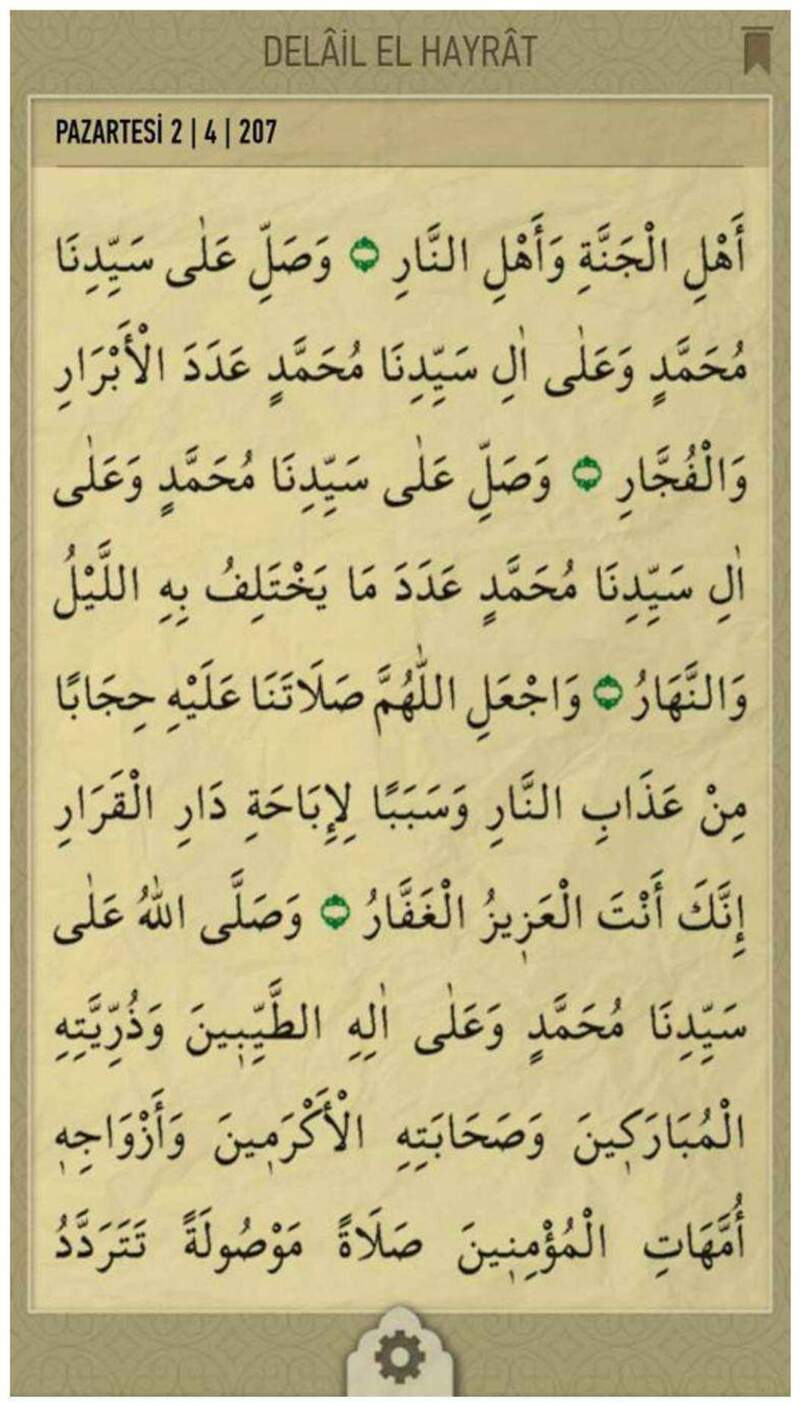 DELÂİL EL HAYRÂT
PAZARTESİ 2 | 4 | 207
أَهْلِ الْجَنَّةِ وَأَهْلِ النَّارِ ۝ وَصَلِّ عَلٰى سَيِّدِنَا
مُحَمَّدٍ وَعَلٰى اٰلِ سَيِّدِنَا مُحَمَّدٍ عَدَدَ الْأَبْرَارِ
وَالْفُجَّارِ ۝ وَصَلِّ عَلٰى سَيِّدِنَا مُحَمَّدٍ وَعَلٰى
اٰلِ سَيِّدِنَا مُحَمَّدٍ عَدَدَ مَا يَخْتَلِفُ بِهِ اللَّيْلُ
وَالنَّهَارُ ۝ وَاجْعَلِ اللّٰهُمَّ صَلَاتَنَا عَلَيْهِ حِجَابًا
مِنْ عَذَابِ النَّارِ وَسَبَبًا لِإِبَاحَةِ دَارِ الْقَرَارِ
إِنَّكَ أَنْتَ الْعَزٖيزُ الْغَفَّارُ ۝ وَصَلَّى اللّٰهُ عَلٰى
سَيِّدِنَا مُحَمَّدٍ وَعَلٰى اٰلِهِ الطَّيِّبٖينَ وَذُرِّيَّتِهِ
الْمُبَارَكٖينَ وَصَحَابَتِهِ الْأَكْرَمٖينَ وَأَزْوَاجِهٖ
أُمَّهَاتِ الْمُؤْمِنٖينَ صَلَاةً مَوْصُولَةً تَتَرَدَّدُ